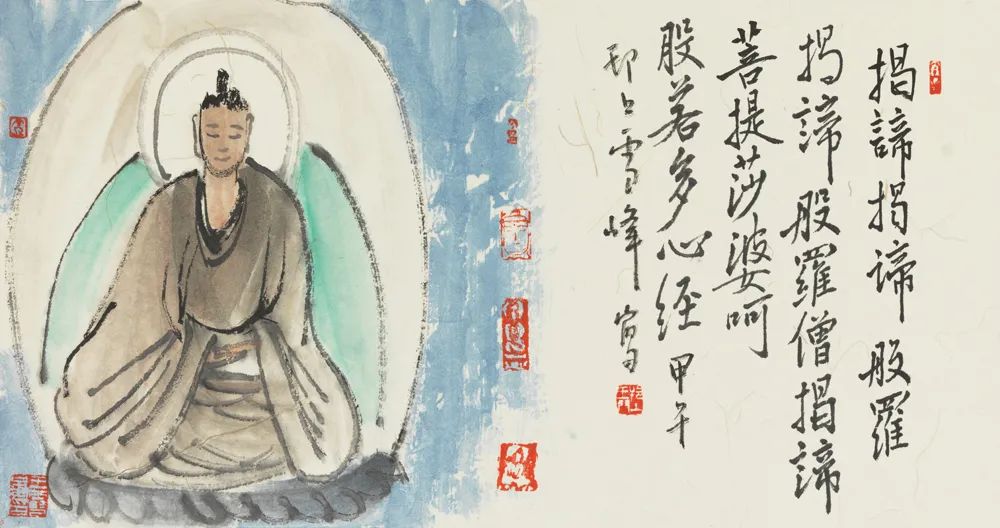 揭諦揭諦般羅
揭諦般羅僧揭諦
菩提莎婆呵
般若多心經 甲午
上雪峰